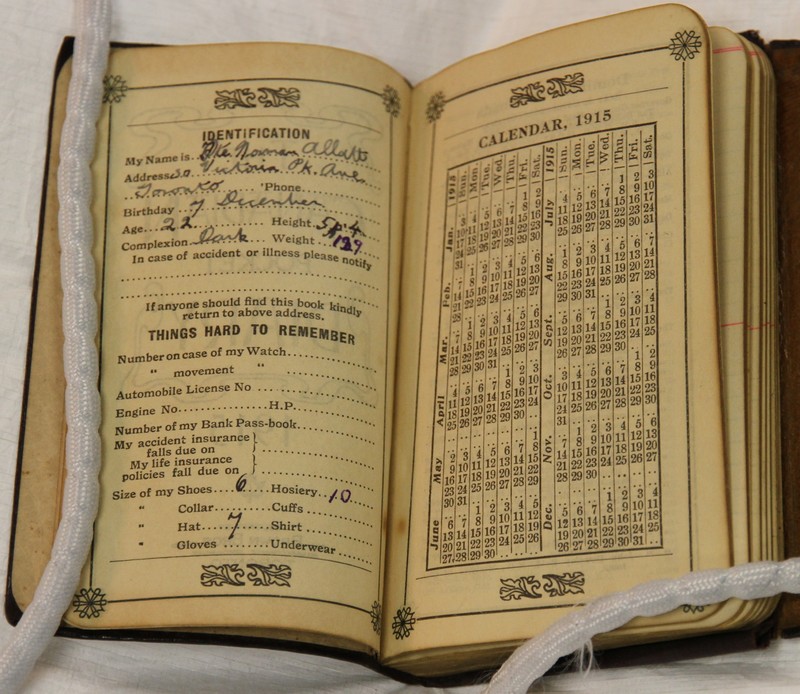 IDENTIFICATION
My Name is.. Pte. Norman Allatt
Address 20 Victoria Pk. Ave.
Toronto 'Phone
Birthday 7 December
Age 22 Height 5ft.4
Complexion Dark Weight 139
In case of accident or illness please notify
If anyone should find this book kindly
return to above address.
THINGS HARD TO REMEMBER
Number on case of my Watch
" movement "
Automobile License No
Engine No. H.P.
Number of my Bank Pass-book
My accident insurance
falls due on
My life insurance
policies fall due on
Size of my Shoes 6 Hosiery 10
" Collar Cuffs
" Hat 7 Shirt
" Gloves Underwear
CALENDAR, 1915
1915 Sun. Mon. Tue. Wed. Thu. Fri. Sat.
Jan. .. .. .. .. .. 1 2
3 4 5 6 7 8 9
10 11 12 13 14 15 16
17 18 19 20 21 22 23
24 25 26 27 28 29 30
31
Feb. .. 1 2 3 4 5 6
7 8 9 10 11 12 13
14 15 16 17 18 19 20
21 22 23 24 25 26 27
28
Mar. .. 1 2 3 4 5 6
7 8 9 10 11 12 13
14 15 16 17 18 19 20
21 22 23 24 25 26 27
28 29 30 31
April .. .. .. .. 1 2 3
4 5 6 7 8 9 10
11 12 13 14 15 16 17
18 19 20 21 22 23 24
25 26 27 28 29 30
May .. .. .. .. .. .. 1
2 3 4 5 6 7 8
9 10 11 12 13 14 15
16 17 18 19 20 21 22
23 24 25 26 27 28 29
30 31
June .. .. 1 2 3 4 5
6 7 8 9 10 11 12
13 14 15 16 17 18 19
20 21 22 23 24 25 26
27 28 29 30
1915 Sun. Mon. Tue. Wed. Thu. Fri. Sat.
July .. .. .. .. 1 2 3
4 5 6 7 8 9 10
11 12 13 14 15 16 17
18 19 20 21 22 23 24
25 26 27 28 29 30 31
Aug. 1 2 3 4 5 6 7
8 9 10 11 12 13 14
15 16 17 18 19 20 21
22 23 24 25 26 27 28
29 30 31
Sept. .. .. .. 1 2 3 4
5 6 7 8 9 10 11
12 13 14 15 16 17 18
19 20 21 22 23 24 25
26 27 28 29 30
Oct. .. .. .. .. .. 1 2
3 4 5 6 7 8 9
10 11 12 13 14 15 16
17 18 19 20 21 22 23
24 25 26 27 28 29 30
31
Nov. .. 1 2 3 4 5 6
7 8 9 10 11 12 13
14 15 16 17 18 19 20
21 22 23 24 25 26 27
28 29 30
Dec. .. .. .. 1 2 3 4
5 6 7 8 9 10 11
12 13 14 15 16 17 18
19 20 21 22 23 24 25
26 27 28 29 30 31